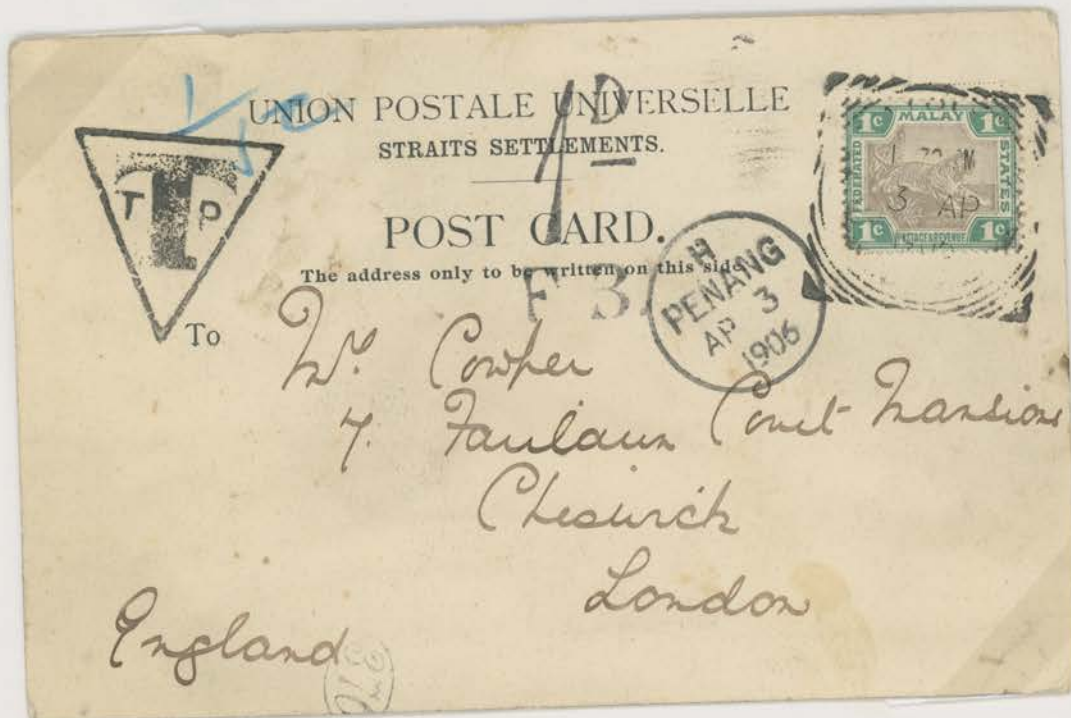 UNION POSTALE UNIVERSELLE
STRAITS SETTLEMENTS.
POST CARD.
The address only to be written on this side.
T
T P
1D
F 3.
H
PENANG
AP 3
1906
1c MALAY 1c
FEDERATED STATES
1c POSTAGE & REVENUE 1c
3 AP
To
Cowper
7. Court Mansions
Cheswick
London
England